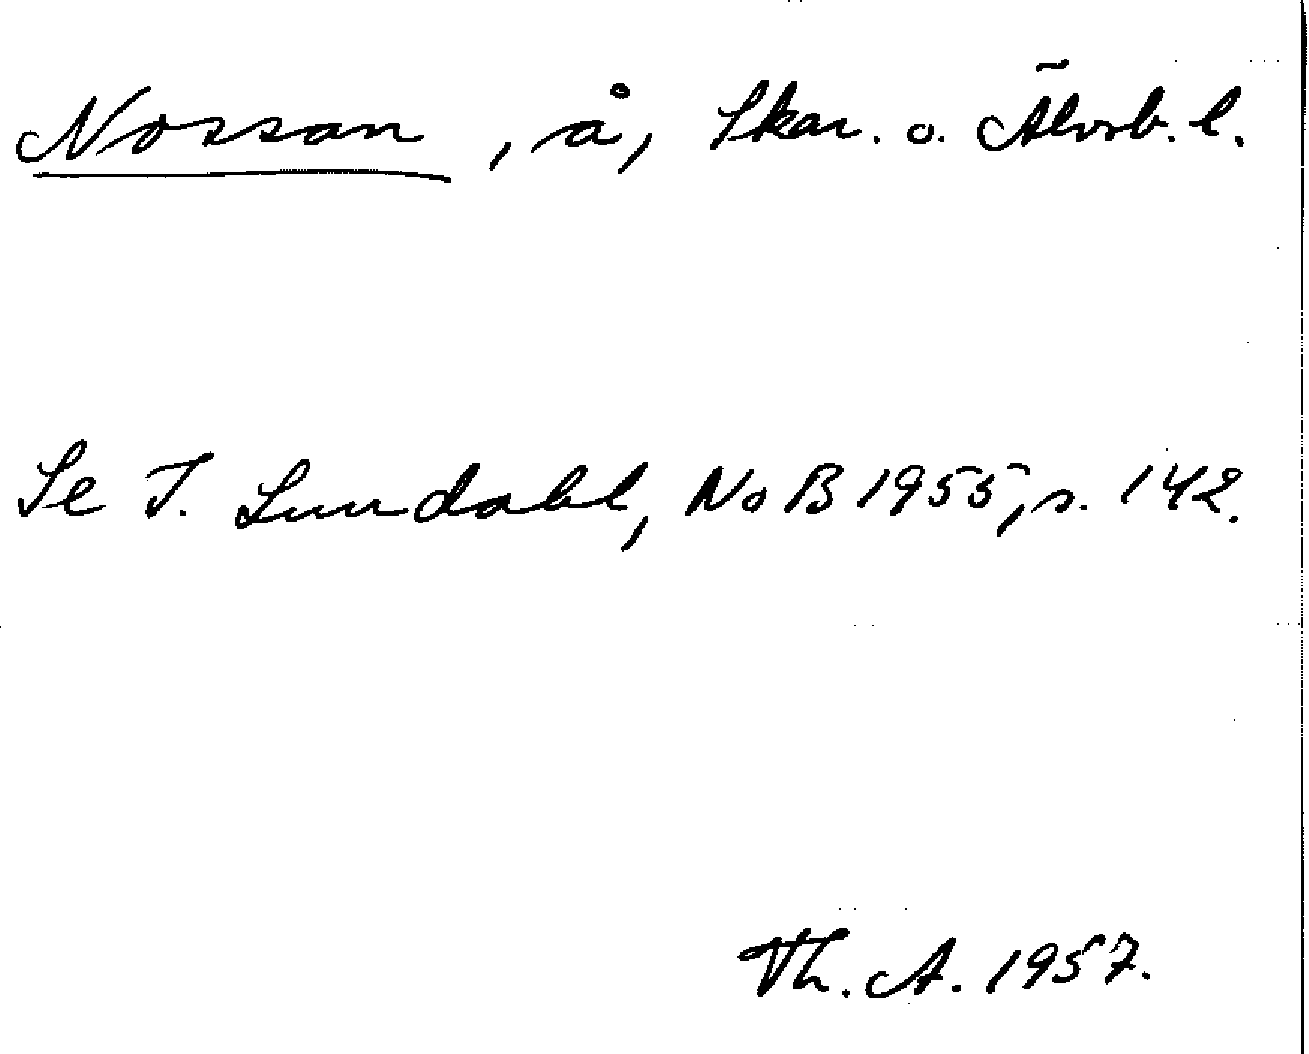 Nossan, å, Skar. o. Älvsb. l.
Se I. Lundahl, NoB 1955, s. 142.
Th. A. 1957.